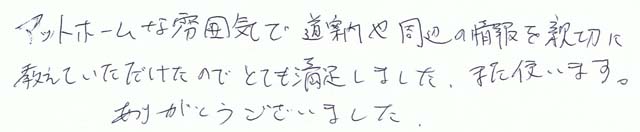 アットホームな雰囲気で道案内や周辺の情報を親切に
教えていただけたのでとても満足しました。また使います。
ありがとうございました.